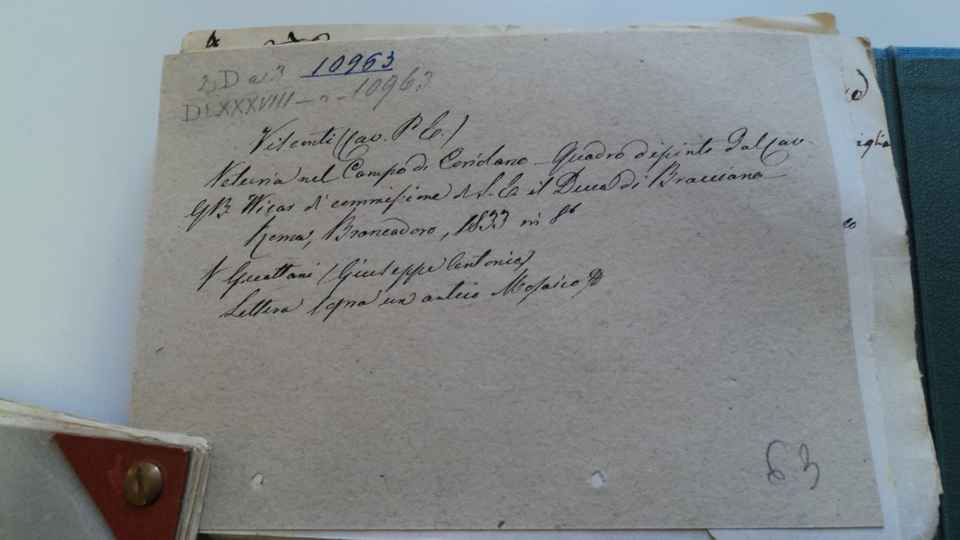 2 D a 3 10963
DLXXXVIII - a - 10963
Visconti (Cav. P. E.)
Veturia nel Campo di Coriolano - Quadro dipinto dal Cav.
GB Wicar di commissione di S. E. il Duca di Bracciano
Roma, Brancadoro, 1833 in 8º
Guattani (Giuseppe Antonio)
Lettera sopra un antico Mosaico
63